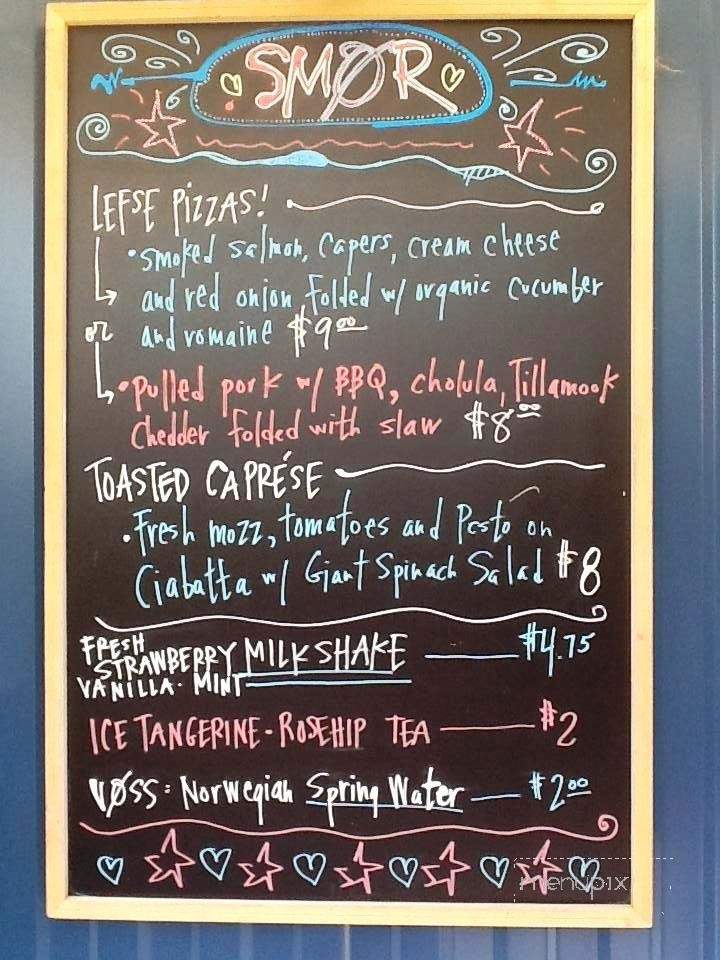 SMØR
LEFSE PIZZAS!
• smoked salmon, capers, cream cheese
and red onion folded w/ organic cucumber
or and romaine $9.00
• Pulled pork w/ BBQ, cholula, Tillamook
Chedder folded with slaw $8.00
TOASTED CAPRÉSE
• Fresh mozz, tomatoes and Pesto on
Ciabatta w/ Giant Spinach Salad $8
FRESH
STRAWBERRY MILKSHAKE $4.75
VANILLA · MINT
ICE TANGERINE - ROSEHIP TEA $2
VØSS: Norwegian Spring Water $2.00
menupix